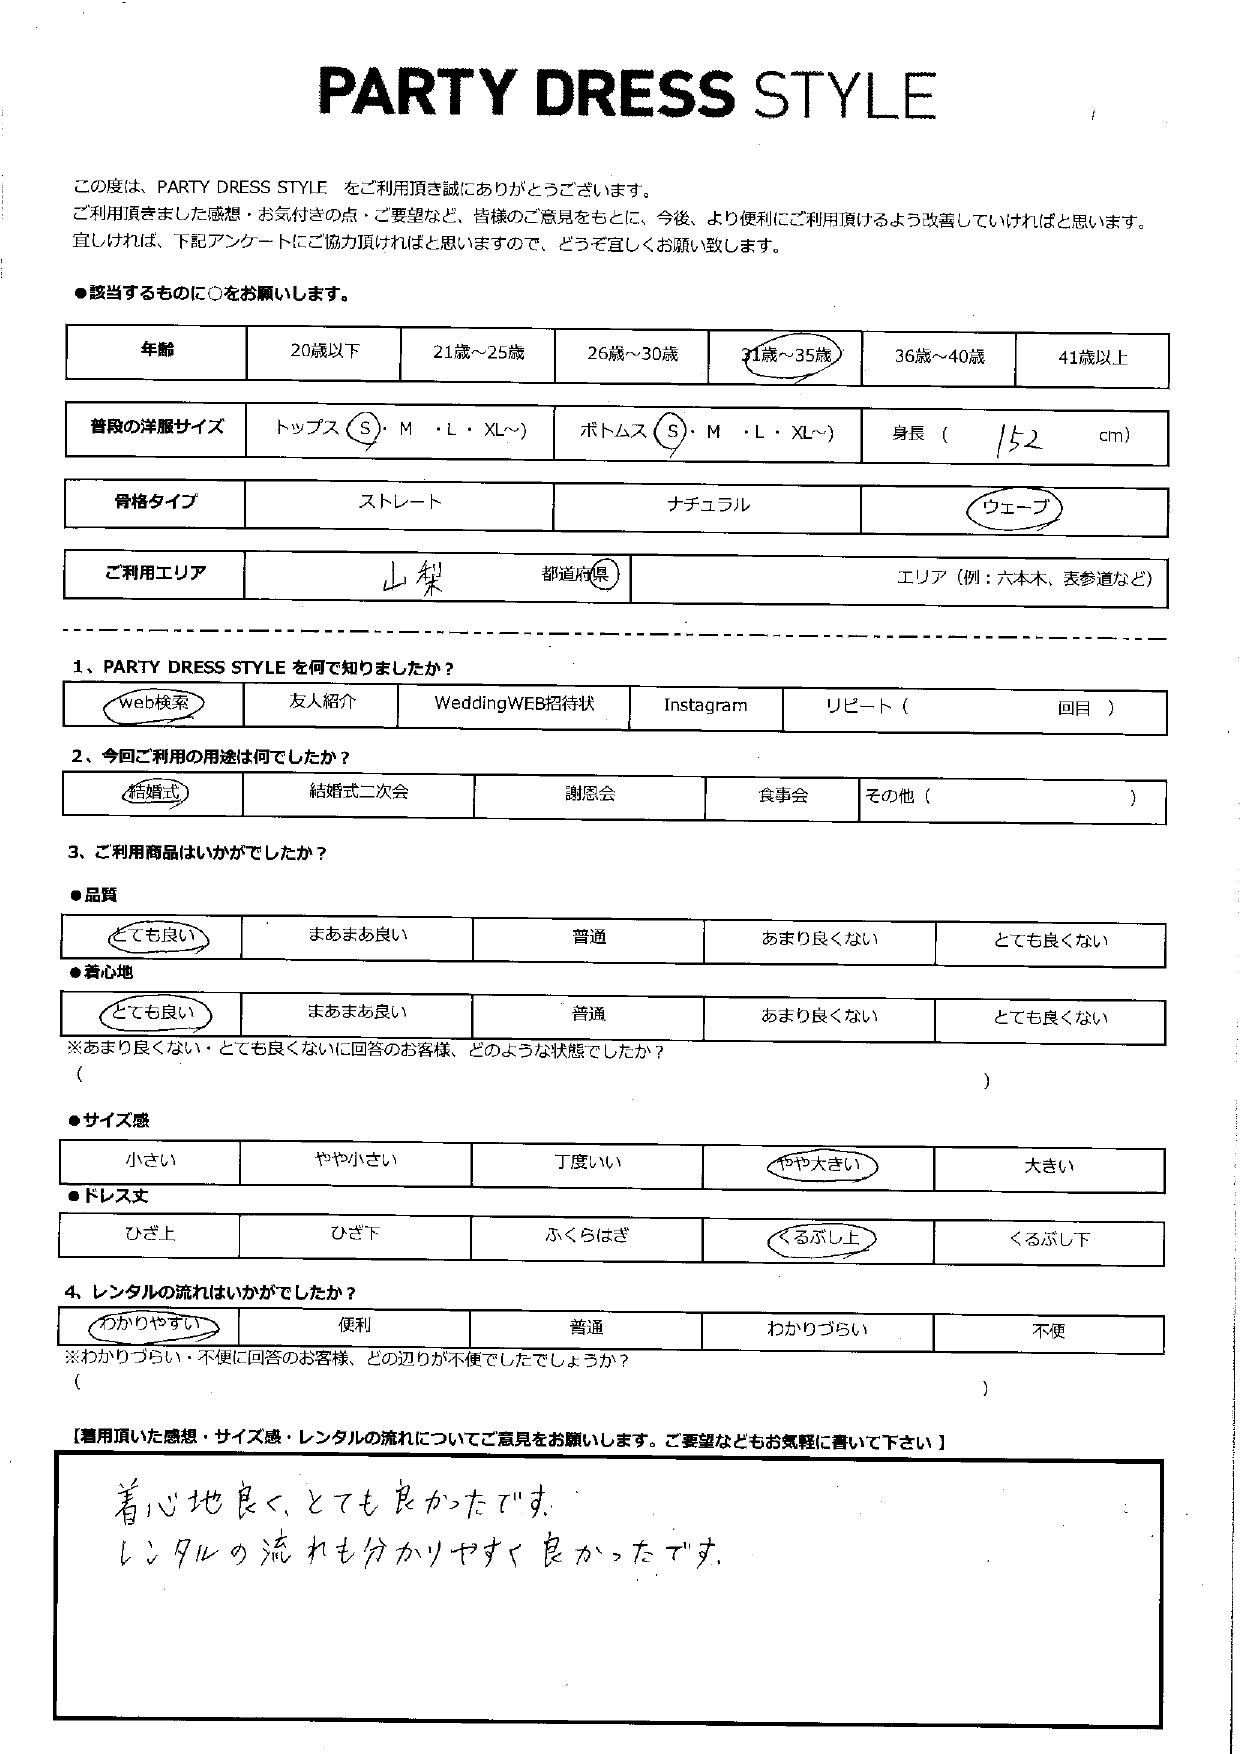 PARTY DRESS STYLE
この度は、PARTY DRESS STYLE をご利用頂き誠にありがとうございます。
ご利用頂きました感想・お気付きの点・ご要望など、皆様のご意見をもとに、今後、より便利にご利用頂けるよう改善していければと思います。
宜しければ、下記アンケートにご協力頂ければと思いますので、どうぞ宜しくお願い致します。
●該当するものに○をお願いします。
年齢 20歳以下 21歳～25歳 26歳～30歳 31歳～35歳 36歳～40歳 41歳以上
普段の洋服サイズ トップス（S・ M ・L・ XL～) ボトムス（S・ M ・L・ XL～) 身長（ 152 cm）
骨格タイプ ストレート ナチュラル ウェーブ
ご利用エリア 山梨 都道府県 エリア（例：六本木、表参道など）
1、PARTY DRESS STYLE を何で知りましたか？
web検索 友人紹介 WeddingWEB招待状 Instagram リピート（ 回目 ）
2、今回ご利用の用途は何でしたか？
結婚式 結婚式二次会 謝恩会 食事会 その他（ ）
3、ご利用商品はいかがでしたか？
●品質
とても良い まあまあ良い 普通 あまり良くない とても良くない
●着心地
とても良い まあまあ良い 普通 あまり良くない とても良くない
※あまり良くない・とても良くないに回答のお客様、どのような状態でしたか？
（ ）
●サイズ感
小さい やや小さい 丁度いい やや大きい 大きい
●ドレス丈
ひざ上 ひざ下 ふくらはぎ くるぶし上 くるぶし下
4、レンタルの流れはいかがでしたか？
わかりやすい 便利 普通 わかりづらい 不便
※わかりづらい・不便に回答のお客様、どの辺りが不便でしたでしょうか？
（ ）
【着用頂いた感想・サイズ感・レンタルの流れについてご意見をお願いします。ご要望などもお気軽に書いて下さい 】
着心地良く、とても良かったです。
レンタルの流れも分かりやすく良かったです。